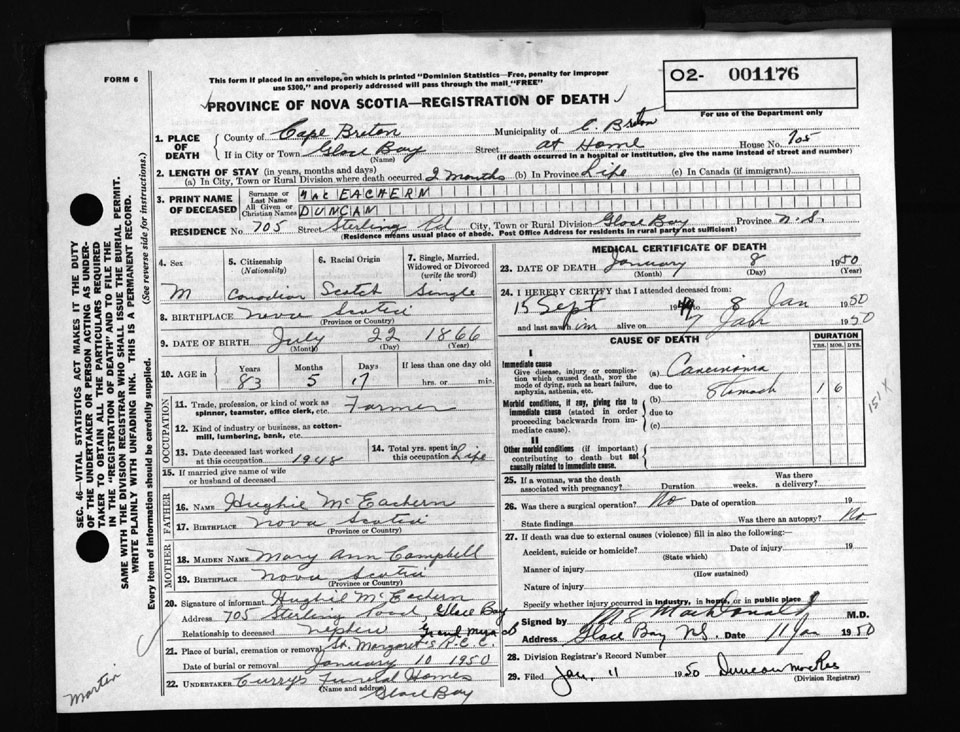 FORM 6
This form if placed in an envelope, on which is printed "Dominion Statistics—Free, penalty for improper
use $300," and properly addressed will pass through the mail "FREE"
PROVINCE OF NOVA SCOTIA—REGISTRATION OF DEATH
02- 001176
For use of the Department only
1. PLACE OF DEATH
County of Cape Breton Municipality of C. Breton
If in City or Town Glace Bay Street at Home House No. 705
(Name) (If death occurred in a hospital or institution, give the name instead of street and number)
2. LENGTH OF STAY (in years, months and days)
(a) In City, Town or Rural Division where death occurred 2 months (b) In Province Life (c) In Canada (if immigrant)
3. PRINT NAME OF DECEASED
Surname or Last Name MAC EACHERN
All Given or Christian Names DUNCAN
RESIDENCE No 705 Street Sterling Rd City, Town or Rural Division Glace Bay Province N.S.
(Residence means usual place of abode. Post Office Address for residents in rural parts not sufficient)
4. Sex M
5. Citizenship (Nationality) Canadian
6. Racial Origin Scotch
7. Single, Married, Widowed or Divorced (write the word) Single
8. BIRTHPLACE Nova Scotia
(Province or Country)
9. DATE OF BIRTH July 22 1866
(Month) (Day) (Year)
10. AGE in Years 83 Months 5 Days 17 If less than one day old hrs. or min.
OCCUPATION
11. Trade, profession, or kind of work as spinner, teamster, office clerk, etc. Farmer
12. Kind of industry or business, as cotton-mill, lumbering, bank, etc.
13. Date deceased last worked at this occupation 1948
14. Total yrs. spent in this occupation Life
15. If married give name of wife or husband of deceased
FATHER
16. NAME Hughie McEachern
17. BIRTHPLACE Nova Scotia
MOTHER
18. MAIDEN NAME Mary Ann Campbell
19. BIRTHPLACE Nova Scotia
(Province or Country)
20. Signature of informant Hughie McEachern
Address 705 Sterling Road Glace Bay
Relationship to deceased nephew
21. Place of burial, cremation or removal St. Margaret's Grand Mira
Date of burial or removal January 10 1950
22. UNDERTAKER Curry's Funeral Homes
(Name and address) Glace Bay
MEDICAL CERTIFICATE OF DEATH
23. DATE OF DEATH January 8 1950
(Month) (Day) (Year)
24. I HEREBY CERTIFY that I attended deceased from:
15 Sept 1949 to 8 Jan 1950
and last saw him alive on 7 Jan 1950
CAUSE OF DEATH
DURATION
YRS. MOS. DYS.
I
Immediate cause
Give disease, injury or complication which caused death, NOT the mode of dying, such as heart failure, asphyxia, asthenia, etc.
(a) Carcinoma
due to Stomach 1 6
(b)
Morbid conditions, if any, giving rise to immediate cause (stated in order proceeding backwards from immediate cause).
due to
(c)
II
Other morbid conditions (if important) contributing to death but not causally related to immediate cause.
151
25. If a woman, was the death associated with pregnancy? Duration weeks. Was there a delivery?
26. Was there a surgical operation? No Date of operation 19
State findings Was there an autopsy? No
27. If death was due to external causes (violence) fill in also the following:
Accident, suicide or homicide? Date of injury 19
(State which)
Manner of injury
(How sustained)
Nature of injury
Specify whether injury occurred in industry, in home, or in public place
Signed by MacDonald M.D.
Address Glace Bay NS. Date 11 Jan 1950
28. Division Registrar's Record Number
29. Filed Jan. 11 1950 Duncan MacRae
(Division Registrar)
SEC. 46—VITAL STATISTICS ACT MAKES IT THE DUTY
OF THE UNDERTAKER OR PERSON ACTING AS UNDER-
TAKER TO OBTAIN ALL THE PARTICULARS REQUIRED
IN THE "REGISTRATION OF DEATH" AND TO FILE THE
SAME WITH THE DIVISION REGISTRAR WHO SHALL ISSUE THE BURIAL PERMIT.
WRITE PLAINLY WITH UNFADING INK. THIS IS A PERMANENT RECORD.
Every item of information should be carefully supplied. (See reverse side for instructions.)
Martin